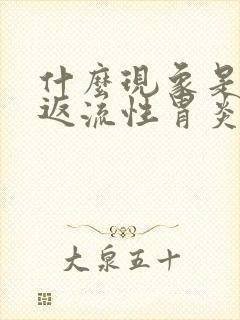 什麼現象是
返流性胃炎
大泉五十